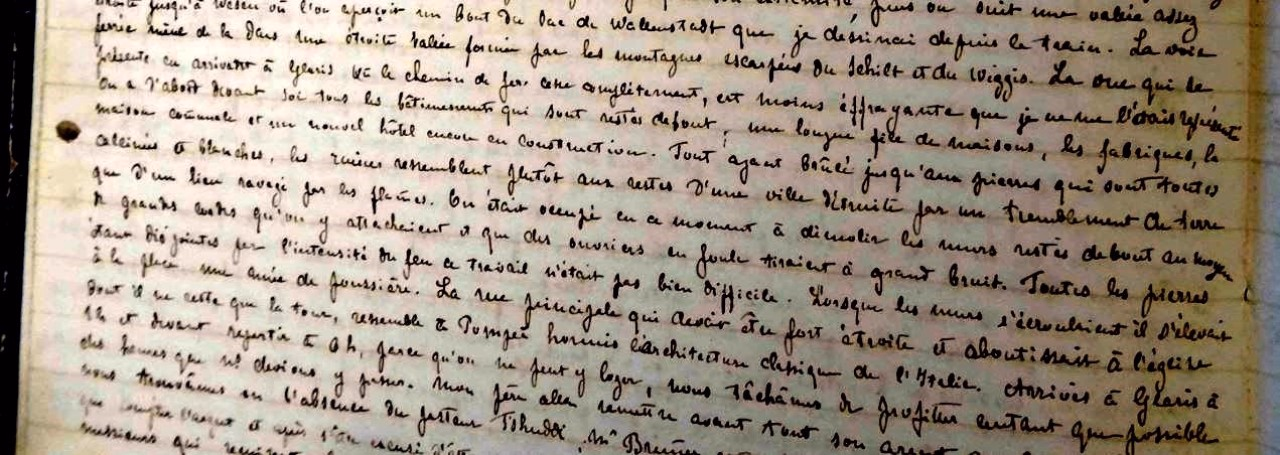 droite jusqu'à Wesen où l'on aperçoit un bout du Lac de Wallenstadt que je dessinai depuis le train. La voie
ferrée mène de là dans une étroite vallée formée par les montagnes escarpées du Schilt et du Wiggis. La vue qui se
présente en arrivant à Glaris où le chemin de fer cesse complètement, est moins effrayante que je ne me l'étais représenté
On a d'abord devant soi tous les bâtiments qui sont restés debout, une longue file de maisons, les fabriques, la
maison comunale et un nouvel hôtel encore en construction. Tout ayant brûlé jusqu'aux pierres qui sont toutes
calcinées et blanches, les ruines ressemblent plutôt aux restes d'une ville détruite par un tremblement de terre
que d'un lieu ravagé par les flames. On était occupé en ce moment à démolir les murs restés debout au moyen
de grandes cordes qu'on y attachaient et que des ouvriers en foule tiraient à grand bruit. Toutes les pierres
étant disjointes par l'intensité du feu ce travail n'était pas bien difficile. Lorsque les murs s'écroulaient il s'élevait
à la place une nuée de poussière. La rue principale qui devait être fort étroite et aboutissait à l'église
dont il ne reste que la tour, ressemble à Pompeï hormis l'architecture classique de l'Italie. Arrivés à Glaris à
et devant repartir à 6 h, parce qu'on ne peut y loger, nous tâchâmes de profiter autant que possible
des heures que ns devions y passer. Mon père alla remettre avant tout son argent
nous trouvâmes en l'absence du pasteur Tshudi, Mr
que compta l'argent et après s'être excusé
messieurs qui